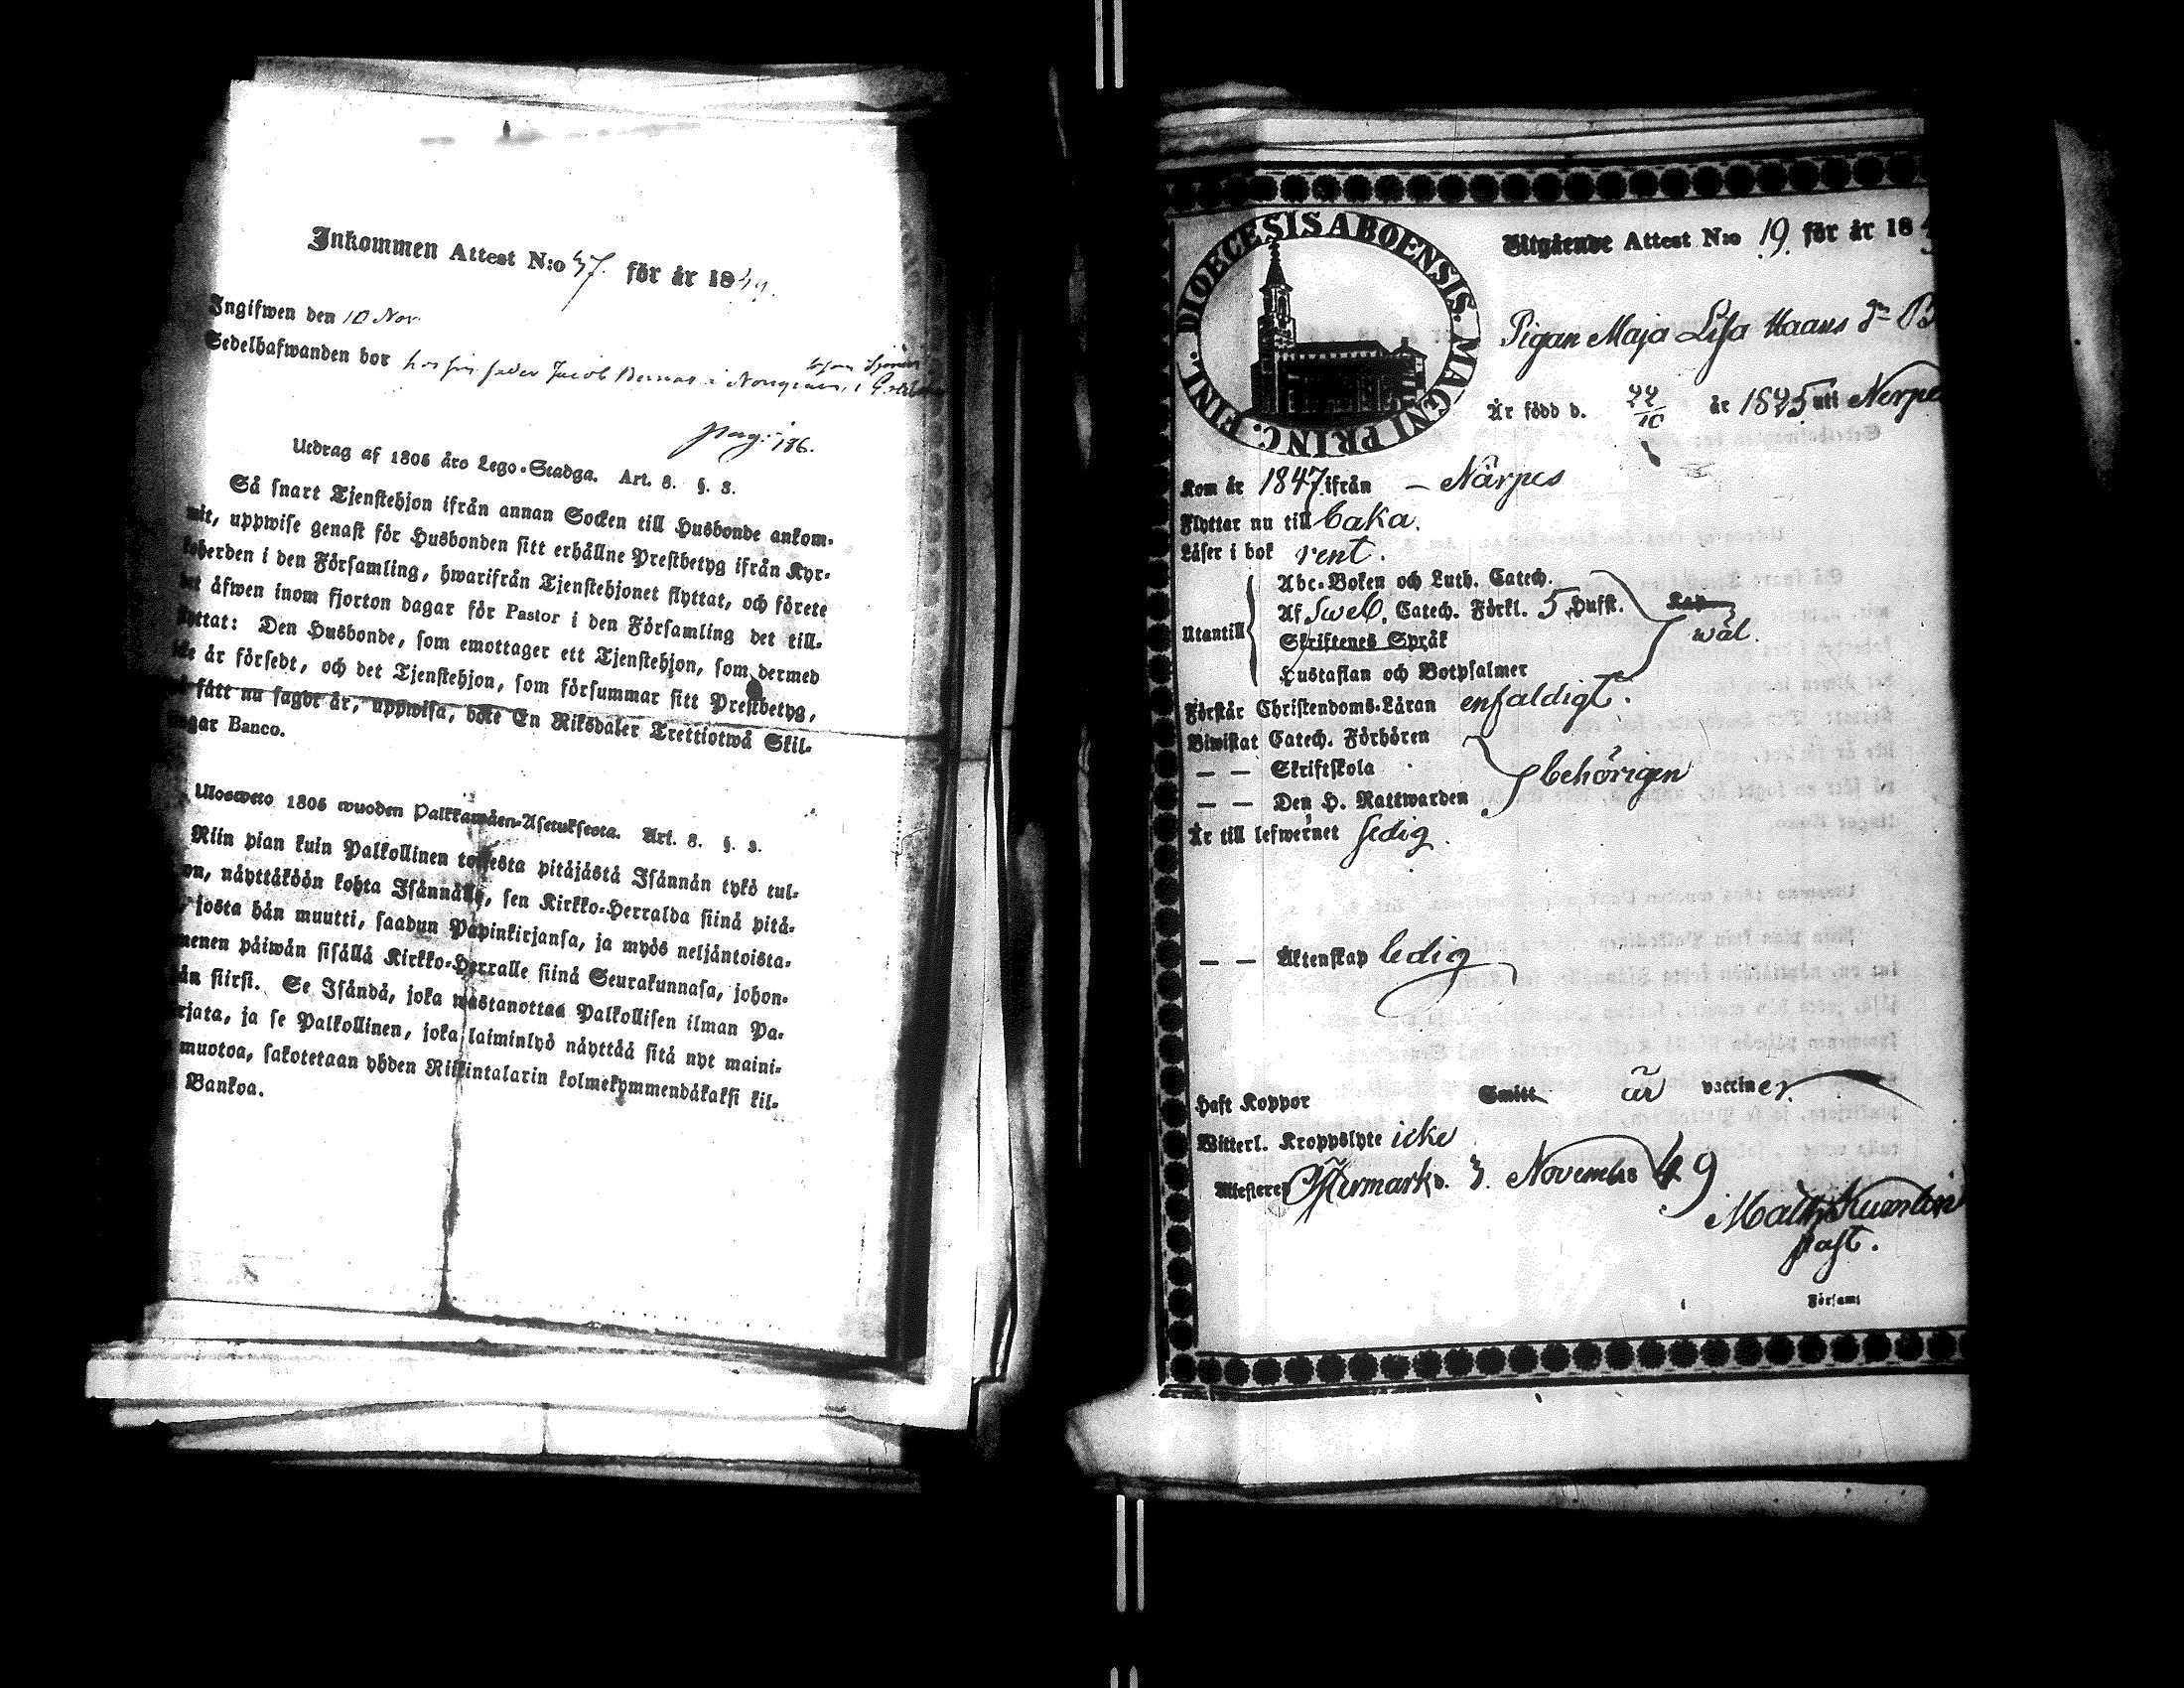 Inkommen Attest N:o 37. för år 1849.
Ingifwen den 10 Nor
Sedelhafwanden bor hos sin fader Jacob i
pag: 186.
Utdrag af 1805 års Lego-Stadga. Art. 8. §. 3.
Så snart Tjenstehjon ifrån annan Socken till Husbonde ankom-
mit, uppwise genast för Husbonden sitt erhållne Prestbetyg ifrån Kyr-
koherden i den Församling, hwarifrån Tjenstehjonet flyttat, och förete
det äfwen inom fjorton dagar för Pastor i den Församling det till-
flyttat: Den Husbonde, som emottager ett Tjenstehjon, som dermed
icke är försedt, och det Tjenstehjon, som försummar sitt Prestbetyg,
fått nu sagdt är, uppwisa, böte En Riksdaler Trettiotwå Skil-
lingar Banco.
Uloswето 1805 wuoden Palkkawäen-Asetuksesta. Art. 8. §. 3.
Niin pian kuin Palkollinen toisesta pitäjästä Isännän tykö tul-
on, näyttäköön kohta Isännälle, sen Kirkko-Herralda siinä pitä-
josta hän muutti, saadun Papinkirjansa, ja myös neljäntoista-
menen päiwän sisällä Kirkko-Herralle siinä Seurakunnasa, johon-
hän siirsi. Se Isändä, joka wastanottaa Palkollisen ilman Pa-
rjata, ja se Palkollinen, joka laiminlyö näyttää sitä nyt maini-
muotoa, sakotetaan yhden Riikintalarin kolmekymmendäkaksi kil-
Bankoa.
DIOECESIS ABOENSIS. MAGNI PRINC. FINL.
Utgående Attest N:o 19. för år 18
Pigan Maja Lisa Maans dr B
Är född d. 22/10 år 1825 uti Nerpe
Kom år 1847 ifrån – Närpes
Flyttar nu till baka.
Läser i bok rent.
Abc-Boken och Luth. Catech.
Af Sweb. Catech. Förkl. 5 Hufst.
Utantill wäl.
Skriftenes Språk
Hustaflan och Botpsalmer
Förstår Christendoms-Läran enfaldigt.
Biwistat Catech. Förhören
— — Skriftskola behörigen
— — Den H. Nattwarden
Är till lefwernet sedig.
— — Äktenskap ledig
Haft Koppor Smitt är vacciner.
Witterl. Kroppslyte icke
Attesterer Öfwermark d. 3. November 49
Math Kumlin
past.
Församl